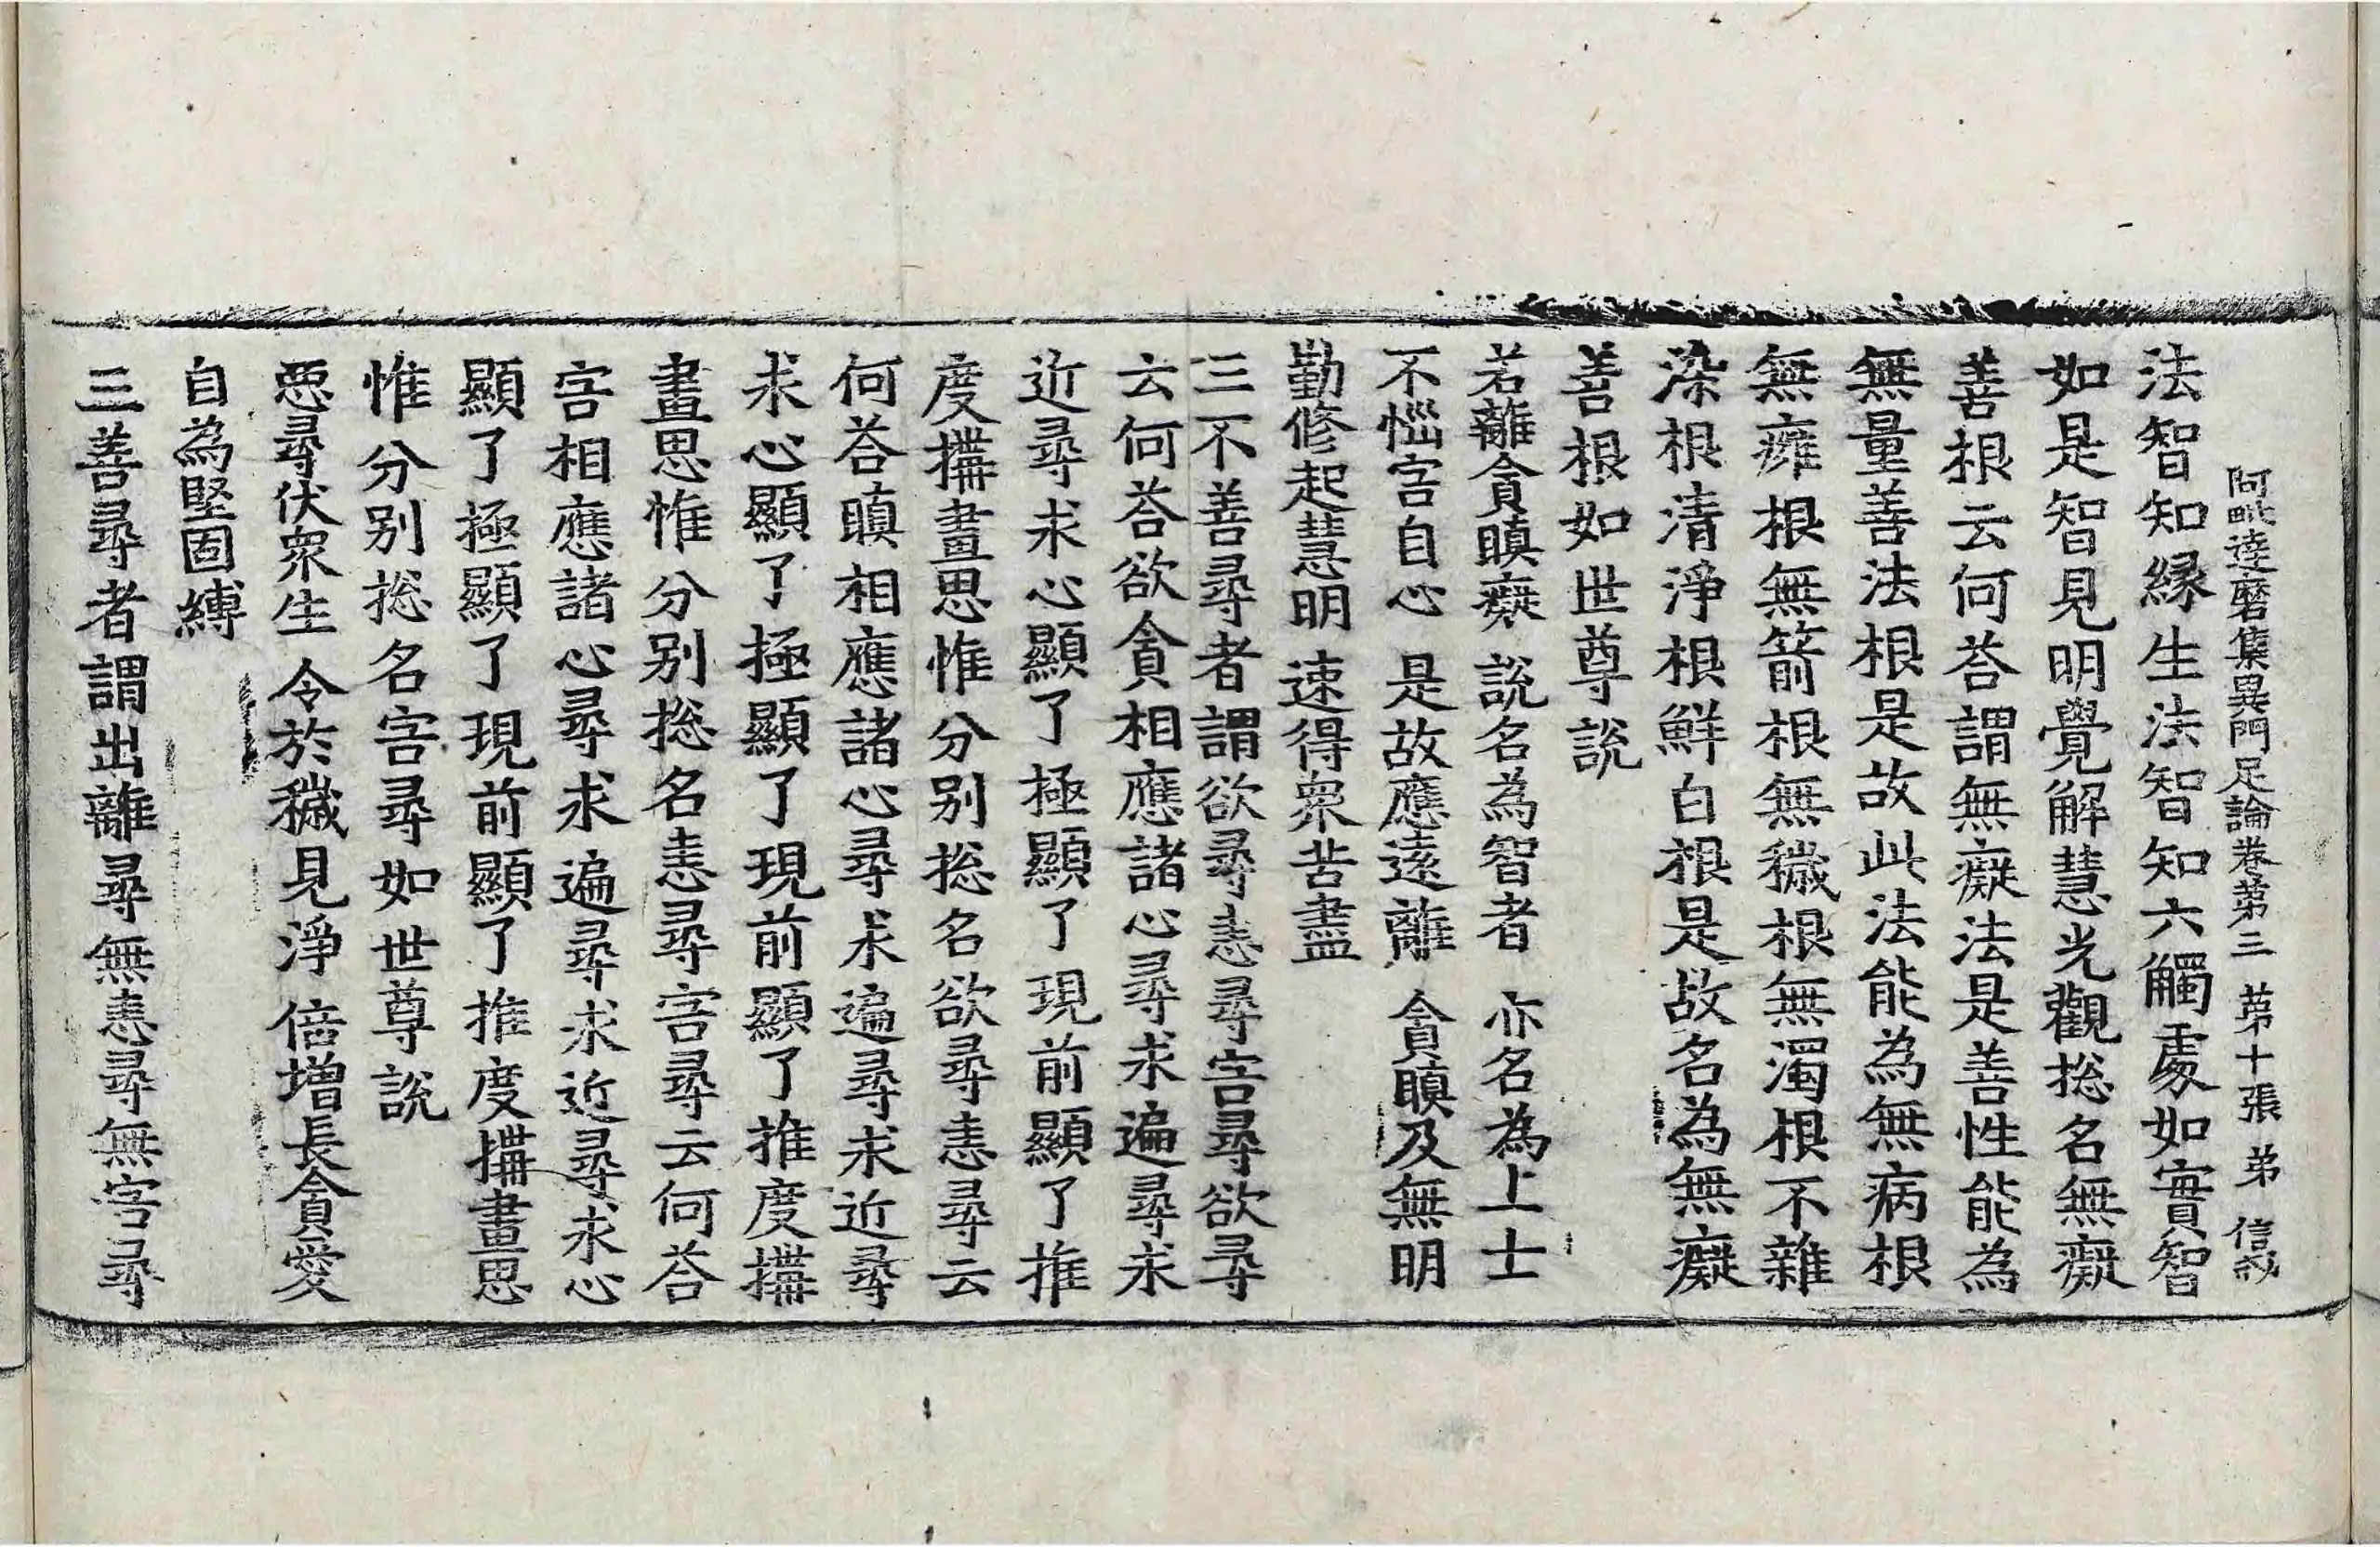 阿毗達磨集異門足論卷第三 第十張 弟 信
法智知緣生法智知六觸處如實智
如是智見明覺解慧光觀捴名無癡
善根云何荅謂無癡法是善性能為
無量善法根是故此法能為無病根
無癰根無箭根無穢根無濁根不雜
染根清淨根鮮白根是故名為無癡
善根如世尊說
若離貪瞋癡 說名為智者 亦名為上士
不惱害自心 是故應遠離 貪瞋及無明
勤修起慧明 速得衆苦盡
三不善尋者謂欲尋恚尋害尋欲尋
云何荅欲貪相應諸心尋求遍尋求
近尋求心顯了極顯了現前顯了推
度搆畫思惟分别捴名欲尋恚尋云
何荅瞋相應諸心尋求遍尋求近尋
求心顯了極顯了現前顯了推度搆
畫思惟分别捴名恚尋害尋云何荅
害相應諸心尋求遍尋求近尋求心
顯了極顯了現前顯了推度搆畫思
惟分别捴名害尋如世尊說
惡尋伏衆生 令於穢見淨 倍增長貪愛
自為堅固縛
三善尋者謂出離尋無恚尋無害尋